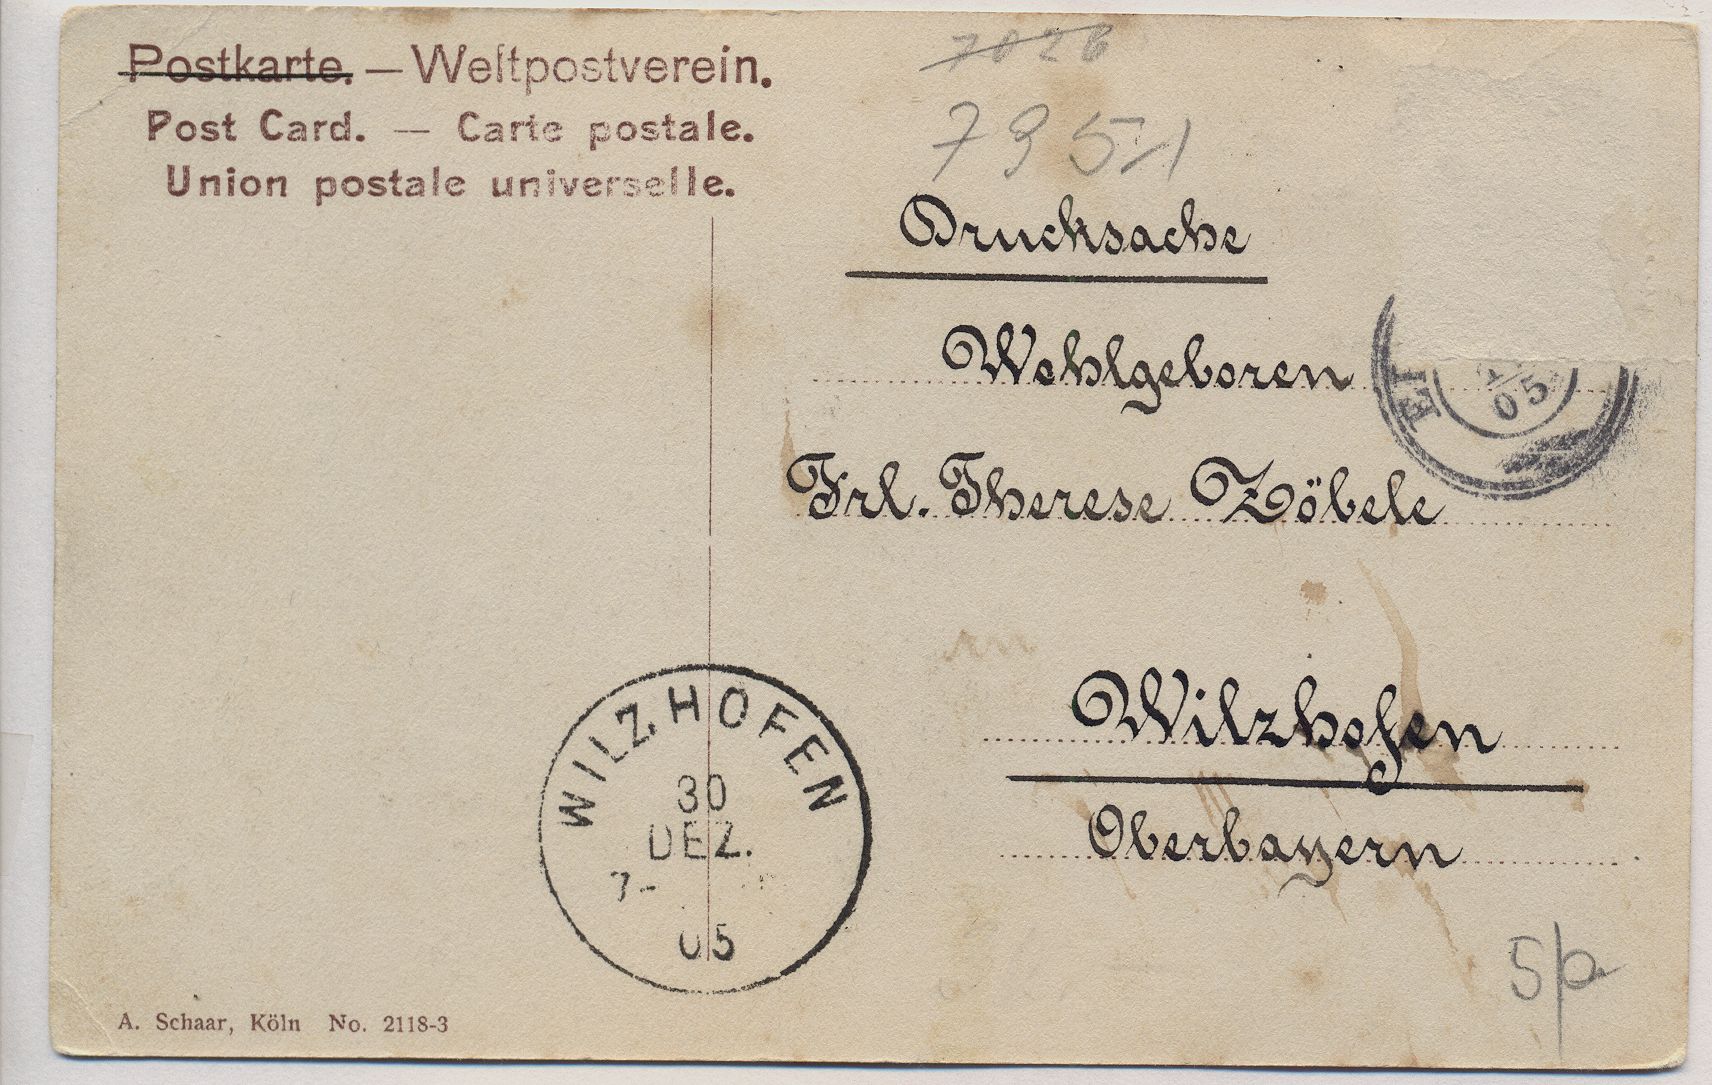 Postkarte. — Weltpostverein.
Post Card. — Carte postale.
Union postale universelle.
7026
7951
Drucksache
Wohlgeboren
Frl. Therese Zöbele
Wilzhofen
Oberbayern
05
WILZHOFEN
30
DEZ.
7-
05
A. Schaar, Köln No. 2118-3